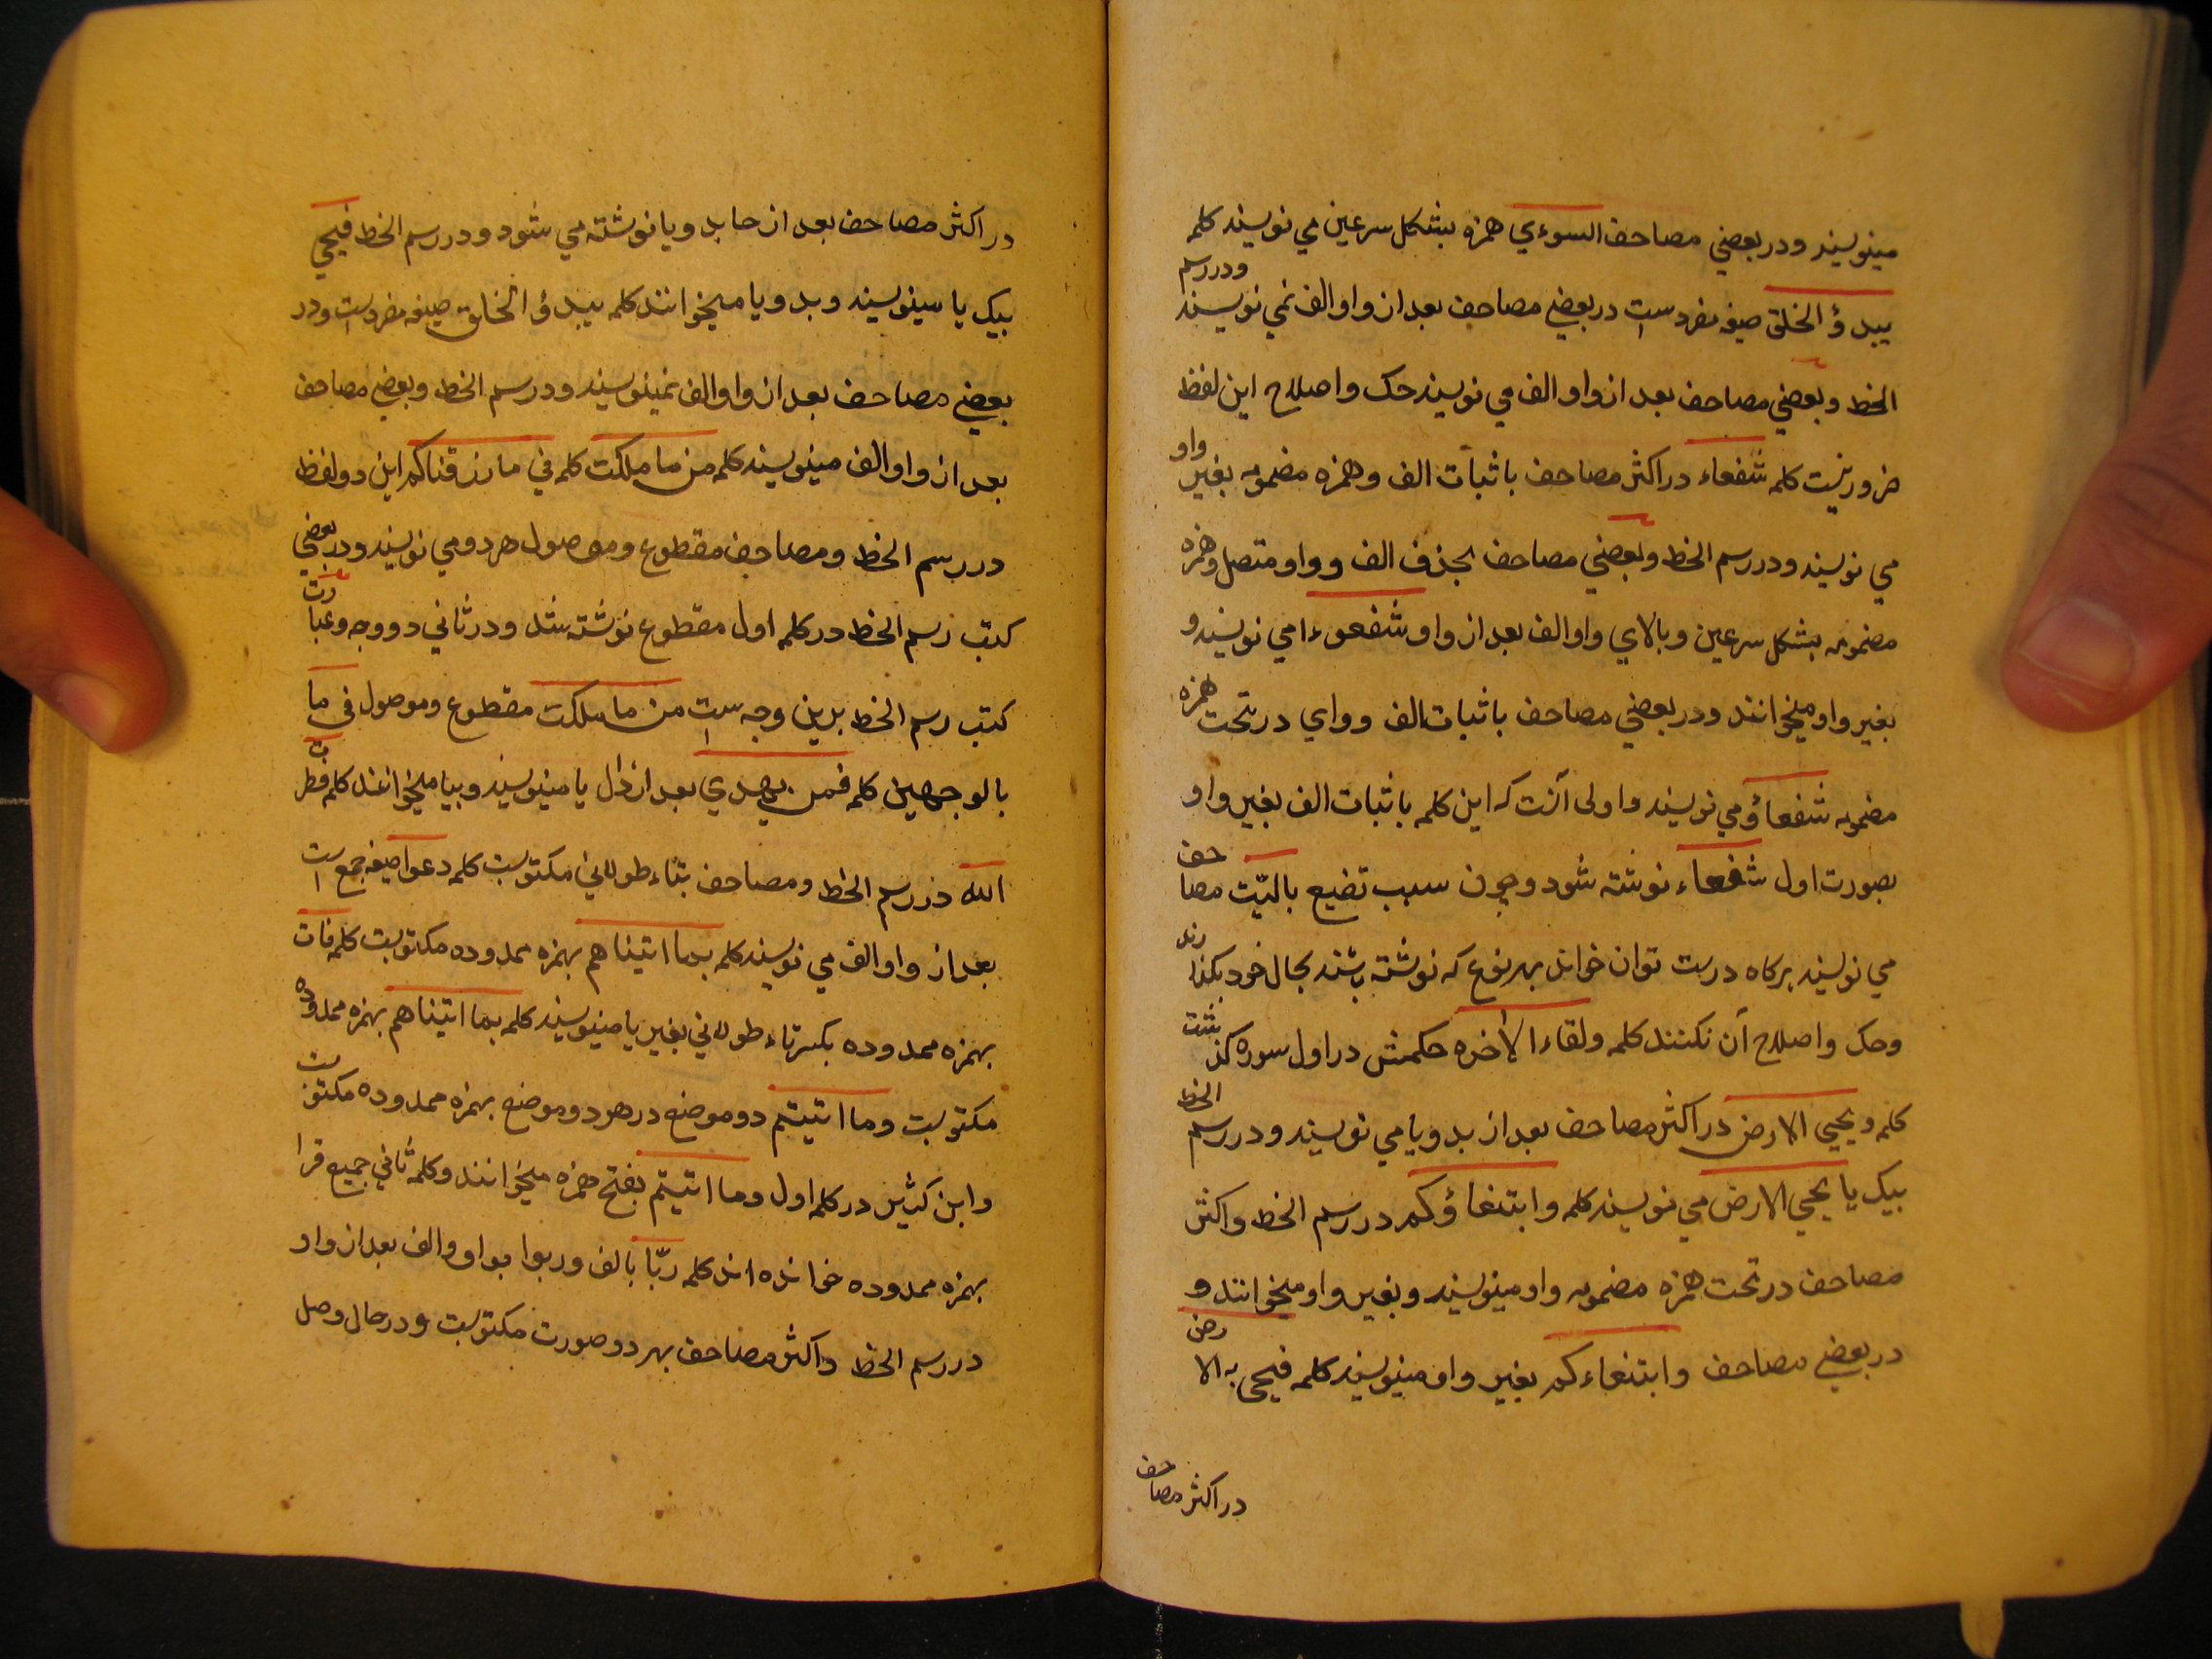 مینویسند ودر بعضي مصاحف السوءي همزه بشكل سرعین مي نویسند كلمه
یبدؤ الخلق صیغه مفردست در بعضي مصاحف بعد از واو الف نمي نویسند ودر رسم
الخط وبعضي مصاحف بعد از واو الف مي نویسند حك واصلاح این لفظ
ضرور نیست كلمه شفعاء در اكثر مصاحف باثبات الف وهمزه مضمومه بغیر واو
مي نویسند ودر رسم الخط وبعضي مصاحف بحذف الف وواو متصل وهمزه
مضمومه بشكل سرعین وبالاي واو الف بعد از واو شفعوءا مي نویسند و
بغیر واو میخوانند ودر بعضي مصاحف باثبات الف وواي در تحت همزه
مضمومه شفعاؤ مي نویسند واولى آنست كه این كلمه باثبات الف بغیر واو
بصورت اول شفعاء نوشته شود وچون سبب تضیع بالیّت مصاحف
مي نویسند بركاه درست توان خواند بهر نوع كه نوشته باشند بحال خود بكذارند
وحك واصلاح آن نكنند كلمه ولقاء الاخره حكمش در اول سوره كذشت
كلمه ویحیي الارض در اكثر مصاحف بعد از بد ویا مي نویسند ودر رسم الخط
بیك یا یحي الارض مي نویسند كلمه وابتغاؤكم در رسم الخط واكثر
مصاحف در تحت همزه مضمومه واو مینویسند وبغیر واو میخوانند و
در بعضي مصاحف وابتغاءكم بغیر واو مینویسند كلمه فیحي به الارض
در اكثر مصاحف
در اكثر مصاحف بعد از حا بد ویا نوشته مي شود ودر رسم الخط فیحي
بیك یا مینویسند وبد ویا میخوانند كلمه یبدؤ الخلق صیغه مفردست ودر
بعضي مصاحف بعد از واو الف نمینویسند ودر رسم الخط وبعضي مصاحف
بعد از واو الف مینویسند كلمه من ما ملكت كلمه في ما رزقناكم این دو لفظ
در رسم الخط ومصاحف مقطوع وموصول هر دو مي نویسند ودر بعضي
كتب رسم الخط در كلمه اول مقطوع نوشته شد ودر ثاني دو وجه وعبارت
كتب رسم الخط بدین وجه است من ما ملكت مقطوع وموصول في ما
بالوجهین كلمه فمن یهدي بعد از دال یا مینویسند وبیا میخوانند كلمه فطرت
الله در رسم الخط ومصاحف بتاء طولاني مكتوبست كلمه دعوا صیغه جمع است
بعد از واو الف مي نویسند كلمه بما اتیناهم بهمزه ممدوده مكتوبست كلمه فات
بهمزه ممدوده بكسر تاء طولاني بغیر یا مینویسند كلمه بما اتیناهم بهمزه ممدوده
مكتوبست وما اتیتم دو موضع در هر دو موضع بهمزه ممدوده مكتوبست
وابن كثیر در كلمه اول وما اتیتم بفتح همزه میخوانند وكلمه ثاني جمیع قرا
بهمزه ممدوده خوانده اند كلمه ربّا بالف وربوا بواو والف بعد از واو
در رسم الخط واكثر مصاحف بهر دو صورت مكتوبست ودر حال وصل